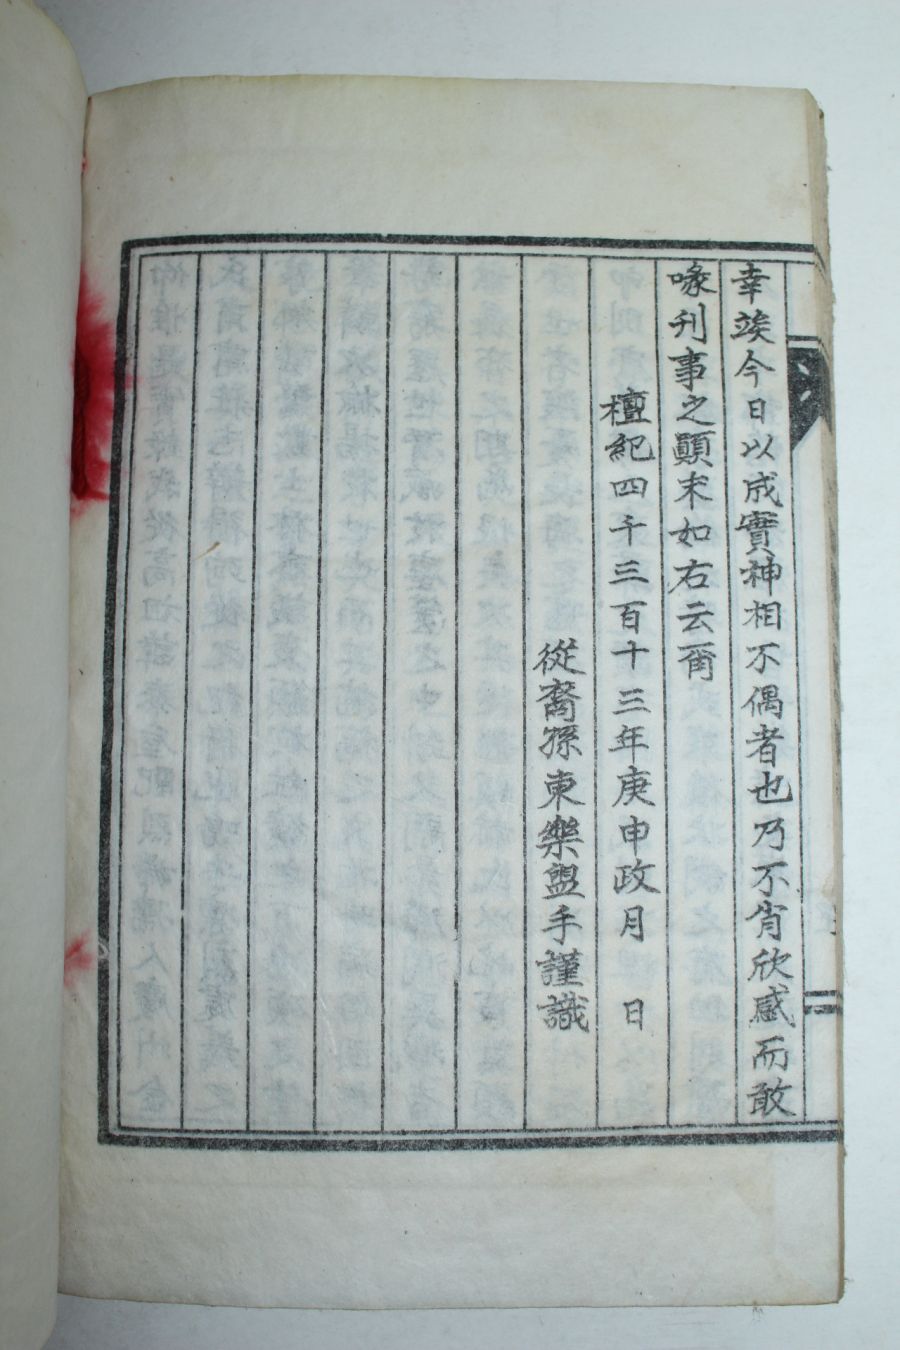 幸竢今日以成實神相不偶者也乃不肯欣感而敢
喙刋事之顚末如右云爾
檀紀四千三百十三年庚申政月　日
從裔孫東樂盥手謹識